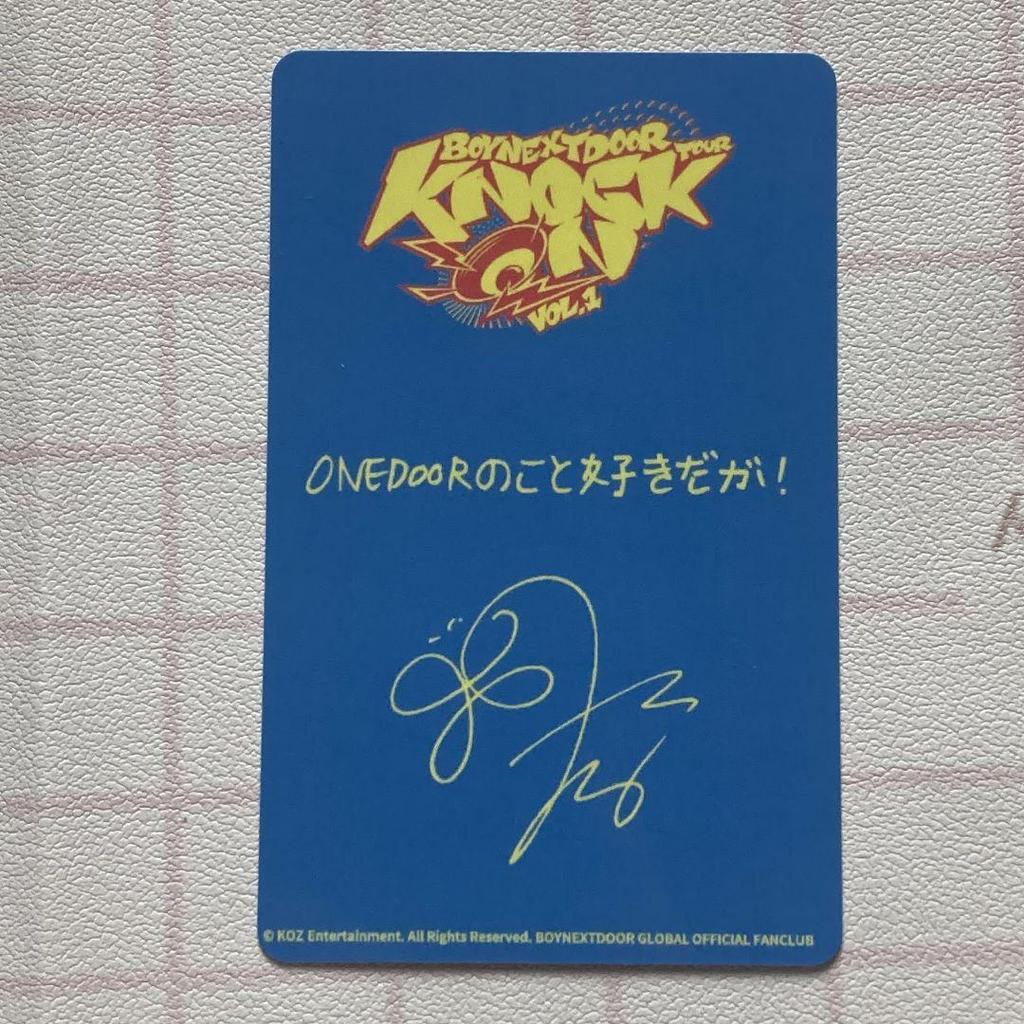 BOYNEXTDOOR TOUR
KNOCK
ON
VOL.1
ONEDOORのこと好きだが!
© KOZ Entertainment. All Rights Reserved. BOYNEXTDOOR GLOBAL OFFICIAL FANCLUB